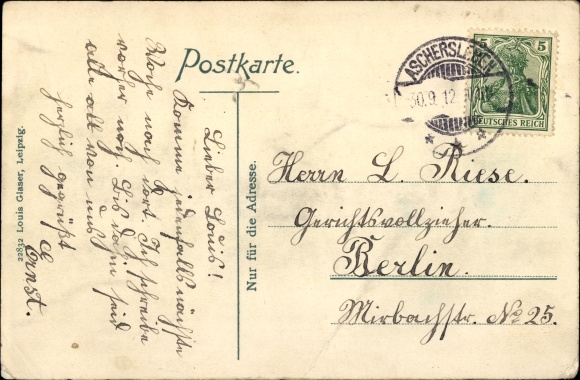 Postkarte.
ASCHERSLEBEN
30.9.12
5
DEUTSCHES REICH
Lieber Louis!
Komme jedenfalls nächste
Woche nach dort. Ich schreibe
vorher noch. Bis dahin seid
alle alt von uns
herzlich gegrüßt
Ernst.
Nur für die Adresse.
Herrn L. Riese.
Gerichtsvollzieher.
Berlin.
Mirbachstr. No 25.
22832 Louis Glaser, Leipzig.